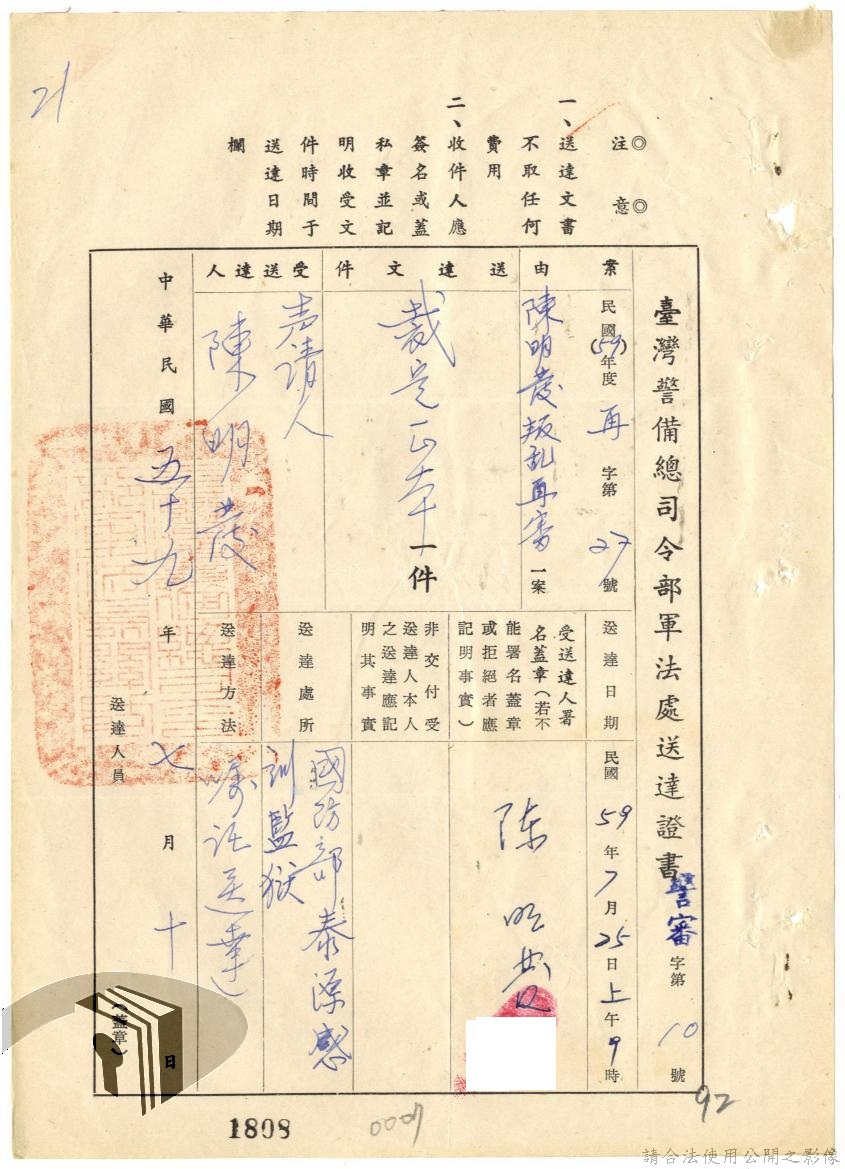 21
◎注意◎
一、送達文書
不取任何
費用
二、收件人應
簽名或蓋
私章並記
明收受文
件時間于
送達日期
欄
臺灣警備總司令部軍法處送達證書
警審字第10號
案由
民國(59)年度再字第27號
陳明發叛乱再審一案
送達文件
裁定正本一件
受送達人
声請人
陳明發
送達日期
民國59年7月25日上午9時
受送達人署
名蓋章(若不
能署名蓋章
或拒絕者應
記明事實)
陈明發
非交付受
送達人本人
之送達應記
明其事實
送達處所
國防部泰源感
訓監獄
送達方法
嘱託送達
中華民國五十九年七月十日
送達人員
(蓋章)
1808
0007
92
請合法使用公開之影像